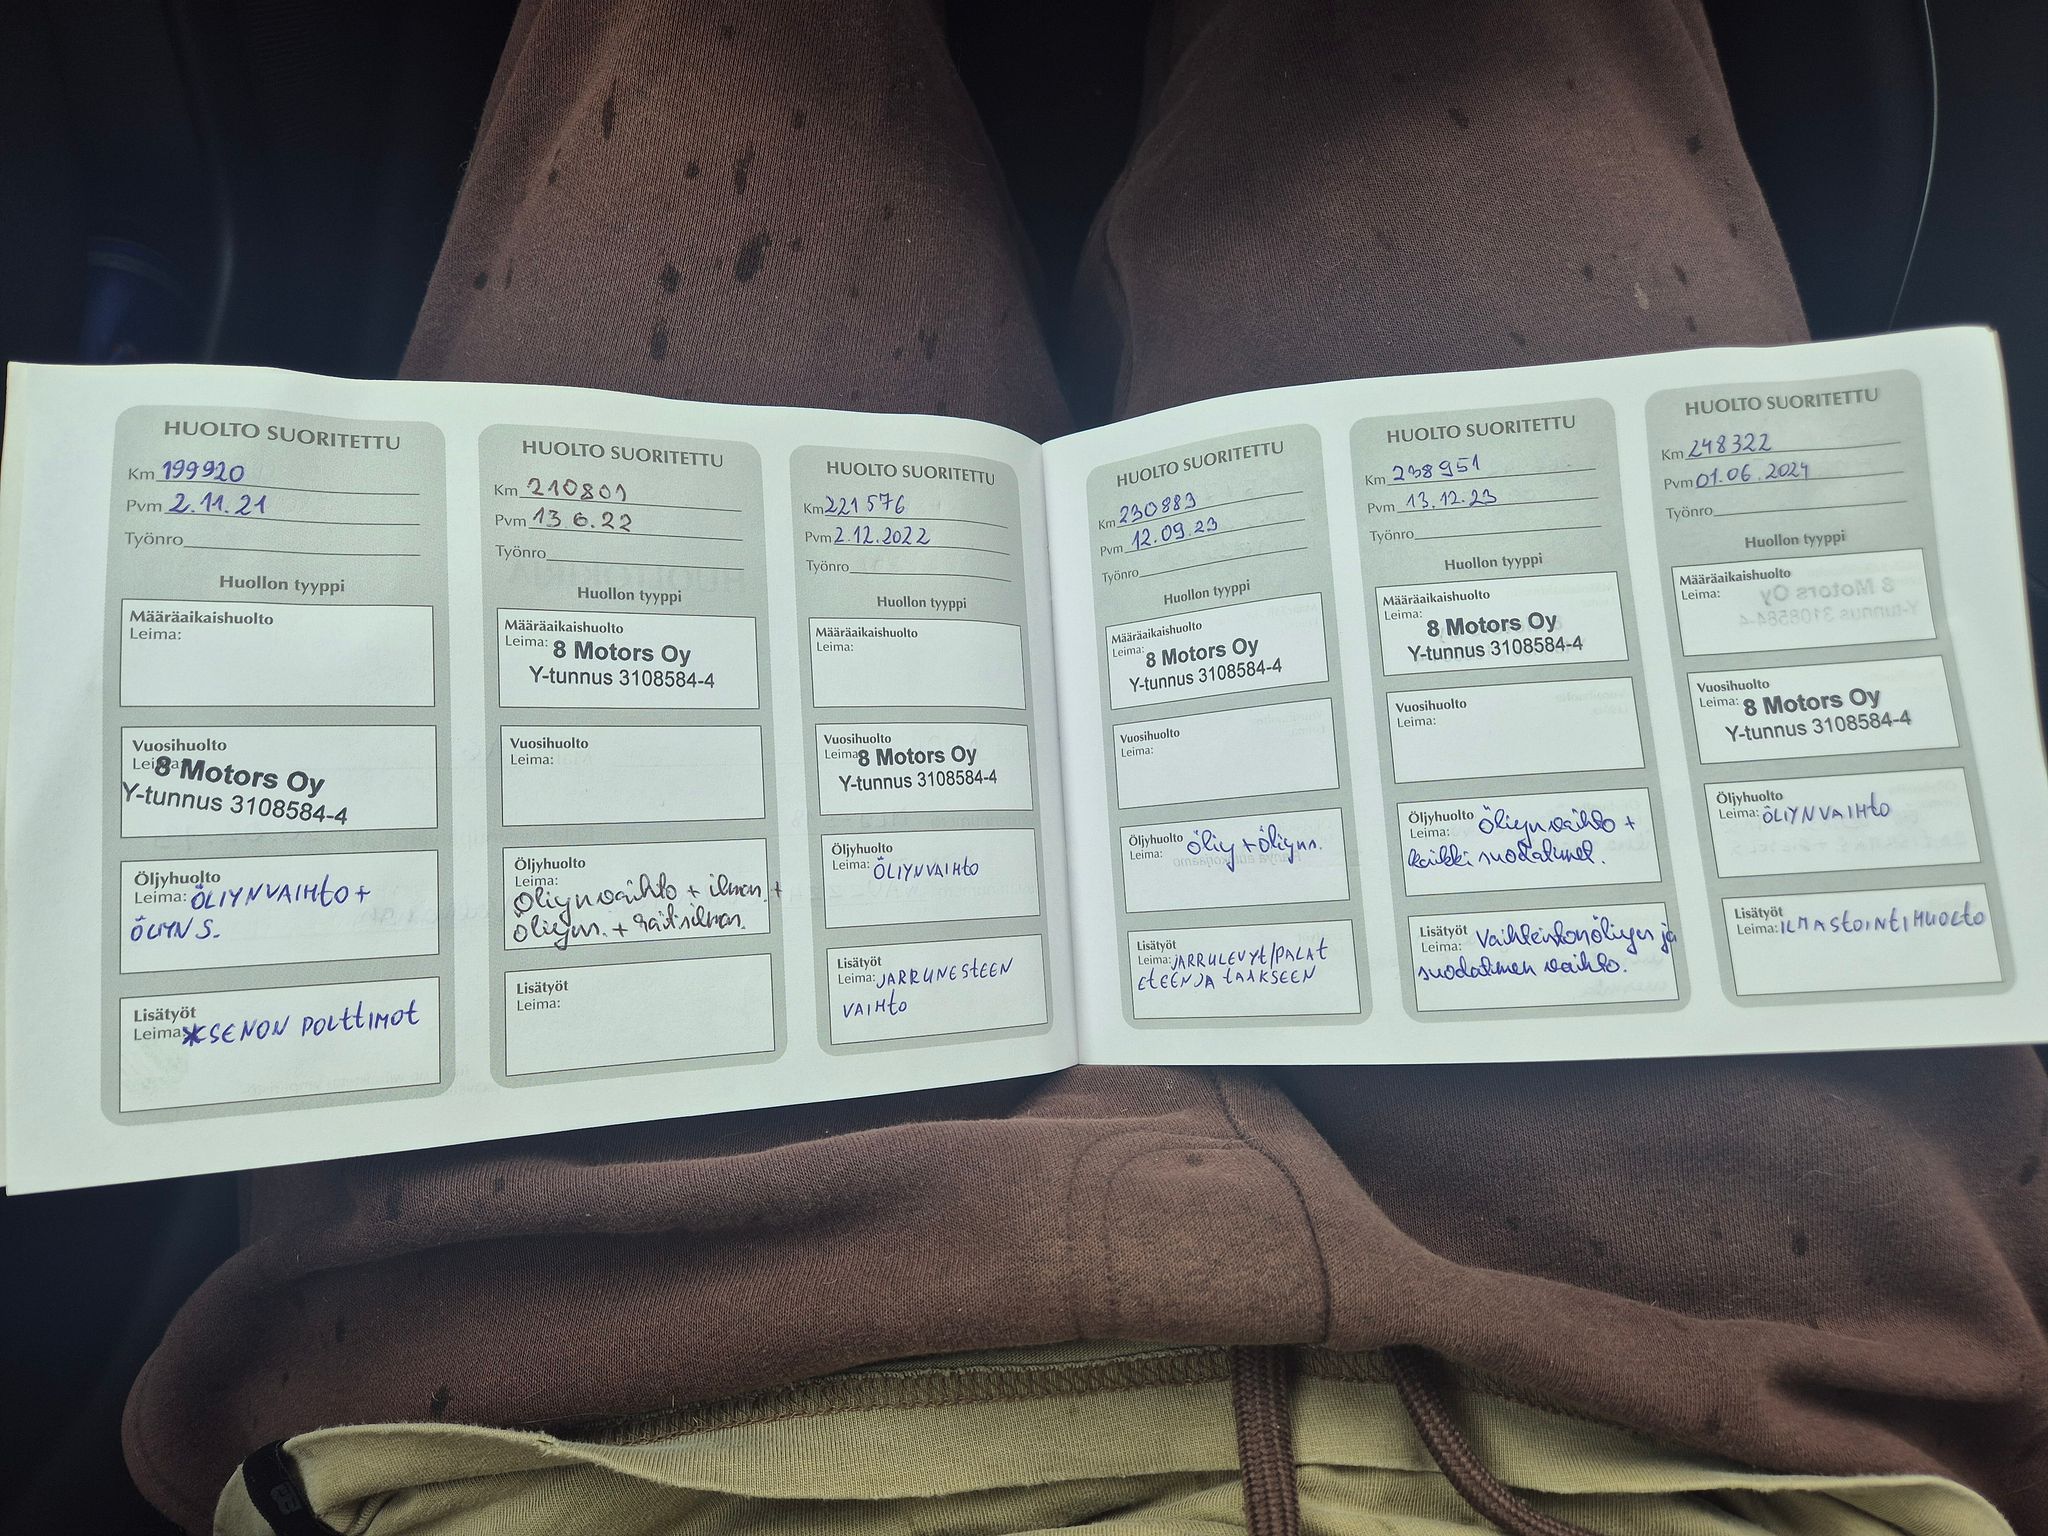 HUOLTO SUORITETTU
Km 199920
Pvm 2.11.21
Työnro
Huollon tyyppi
Määräaikaishuolto
Leima:
Vuosihuolto
Leima:
8 Motors Oy
Y-tunnus 3108584-4
Öljyhuolto
Leima: ÖLIYNVAIHTO +
ÖLIYN S.
Lisätyöt
Leima: KSENON POLTTIMOT
HUOLTO SUORITETTU
Km 210801
Pvm 13 6.22
Työnro
Huollon tyyppi
Määräaikaishuolto
Leima: 8 Motors Oy
Y-tunnus 3108584-4
Vuosihuolto
Leima:
Öljyhuolto
Leima:
Öliynvaihto + ilman. +
öliyns. + raitisilman.
Lisätyöt
Leima:
HUOLTO SUORITETTU
Km 221576
Pvm 2.12.2022
Työnro
Huollon tyyppi
Määräaikaishuolto
Leima:
Vuosihuolto
Leima: 8 Motors Oy
Y-tunnus 3108584-4
Öljyhuolto
Leima: ÖLIYNVAIHTO
Lisätyöt
Leima: JARRUNESTEEN
VAIHTO
HUOLTO SUORITETTU
Km 230883
Pvm 12.09.23
Työnro
Huollon tyyppi
Määräaikaishuolto
Leima: 8 Motors Oy
Y-tunnus 3108584-4
Vuosihuolto
Leima:
Öljyhuolto
Leima: Öliy + Öliyns.
Lisätyöt
Leima: JARRULEVYT/PALAT
ETEEN JA TAAKSEEN
HUOLTO SUORITETTU
Km 238951
Pvm 13.12.23
Työnro
Huollon tyyppi
Määräaikaishuolto
Leima: 8 Motors Oy
Y-tunnus 3108584-4
Vuosihuolto
Leima:
Öljyhuolto
Leima: Öliynvaihto +
kaikki suodatimet.
Lisätyöt
Leima: Vaihteistonöliyn ja
suodatimen vaihto.
HUOLTO SUORITETTU
Km 248322
Pvm 01.06.2024
Työnro
Huollon tyyppi
Määräaikaishuolto
Leima:
Vuosihuolto
Leima: 8 Motors Oy
Y-tunnus 3108584-4
Öljyhuolto
Leima: ÖLIYNVAIHTO
Lisätyöt
Leima: ILMASTOINTIHUOLTO